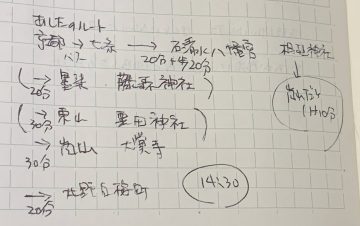 あしたのルート
京都 → 七条 → 石清水八幡宮
バス 20分+歩20分
神社
(→ 墨染 藤森神社)
20分
(→ 東山 粟田神社)
30分
→ 嵐山 大覚寺
30分
→ 北野白梅町
20分
14:30